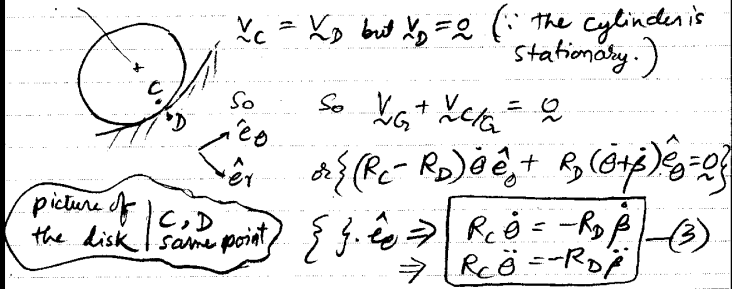 V_C = V_D but V_D = 0 (∵ the cylinder is
stationary.)
C
D
So
So V_G + V_C/G = 0
ê_θ
ê_r
or {(R_C - R_D) θ̇ ê_θ + R_D (θ̇ + β̇) ê_θ = 0}
picture of
the disk | C, D
same point
{ } · ê_θ ⇒ R_C θ̇ = -R_D β̇ —(3)
⇒ R_C θ̈ = -R_D β̈